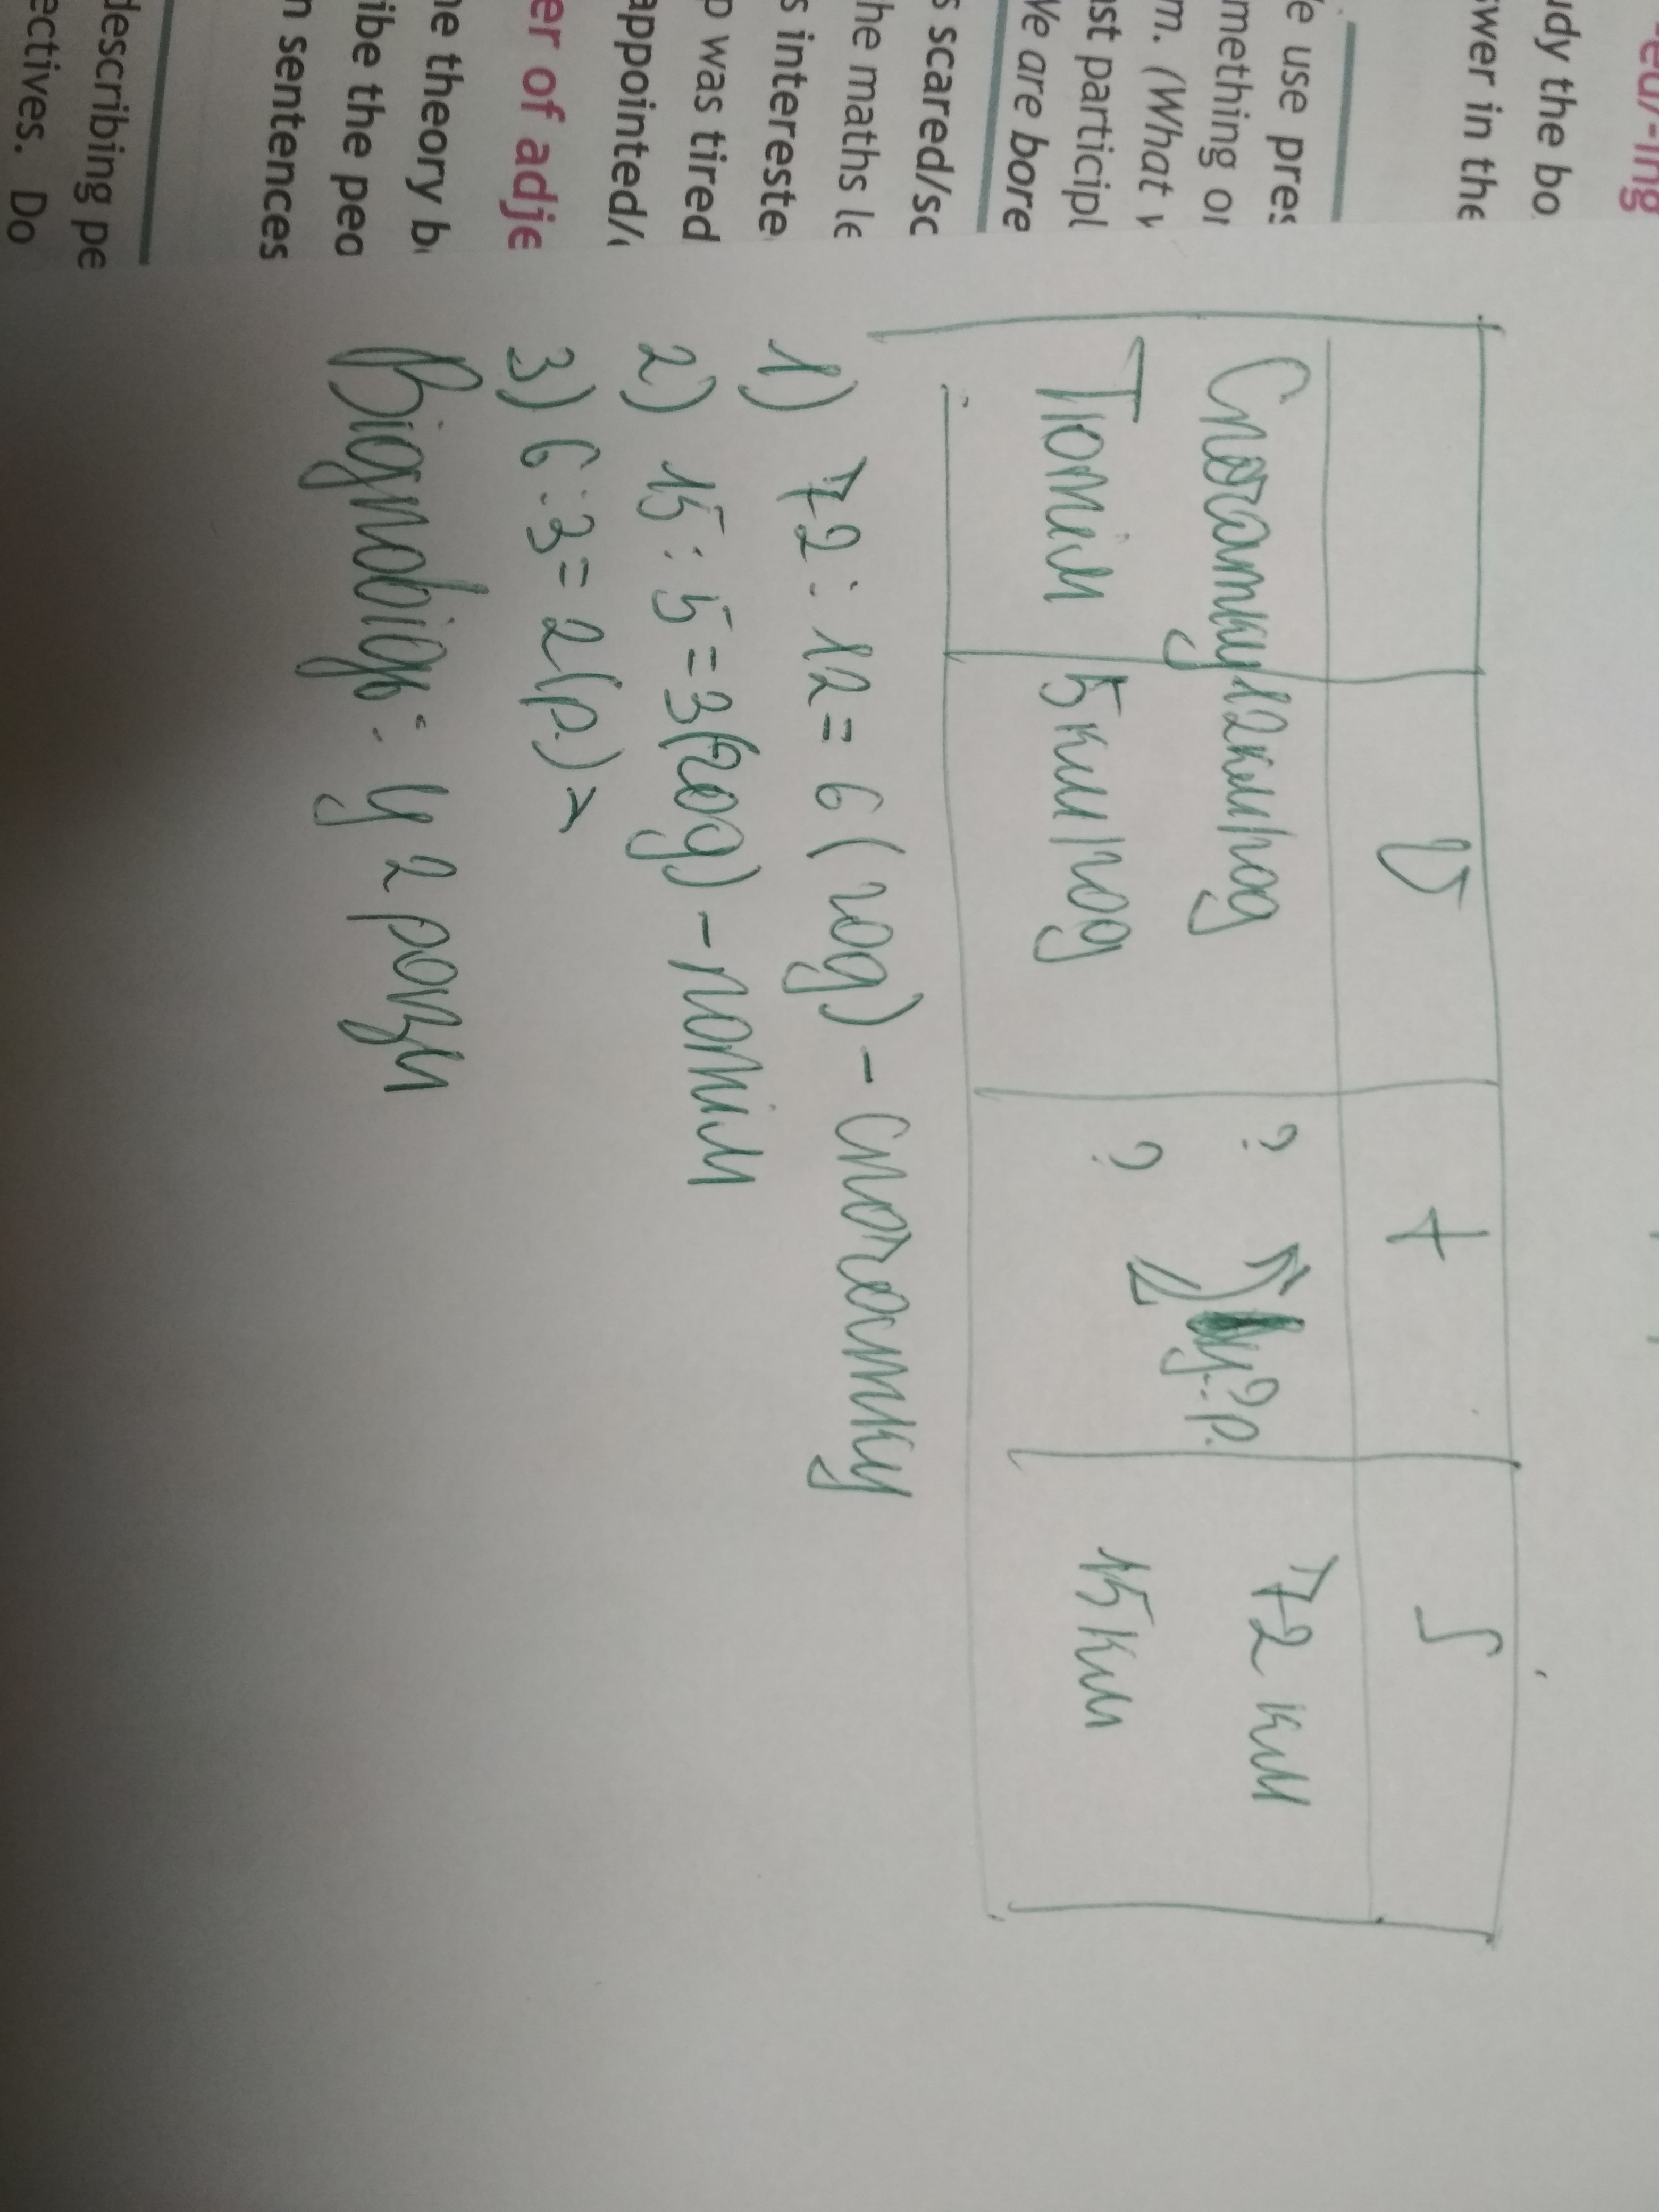 -ed/-ing
udy the bo
swer in the
e use pres
mething or
m. (What v
ast participl
We are bore
s scared/sc
he maths le
s intereste
p was tired
appointed/
er of adje
he theory b
ibe the peo
n sentences
describing pe
ectives. Do
v t S
Спочатку 12км/год ? у ? р. 72 км
Потім 5км/год ? 15км
1) 72 : 12 = 6 (год) - спочатку
2) 15 : 5 = 3(год) - потім
3) 6 : 3 = 2(р.) >
Відповідь: у 2 рази